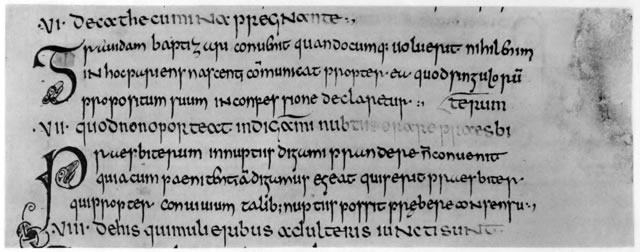 ·VI· de cathecumina pregnante :,
Grauidam baptizari conuenit quandocumq; uoluerit nihil enim
in hoc pariens nascenti cōmunicat propter ea quod singulorū
propositum suum in confessione declaretur :, terum
·VII· quod non oporteat in digami nubtiis orare praesbi
Praesbiterum in nuptiis digami prandere n̄ conuenit
quia cum paenitentia digamus egeat quis erit praesbiter
qui propter conuiuium talib; nuptiis possit prębere consensū :,
·VIII· de his qui mulieribus adulteris iuncti sunt